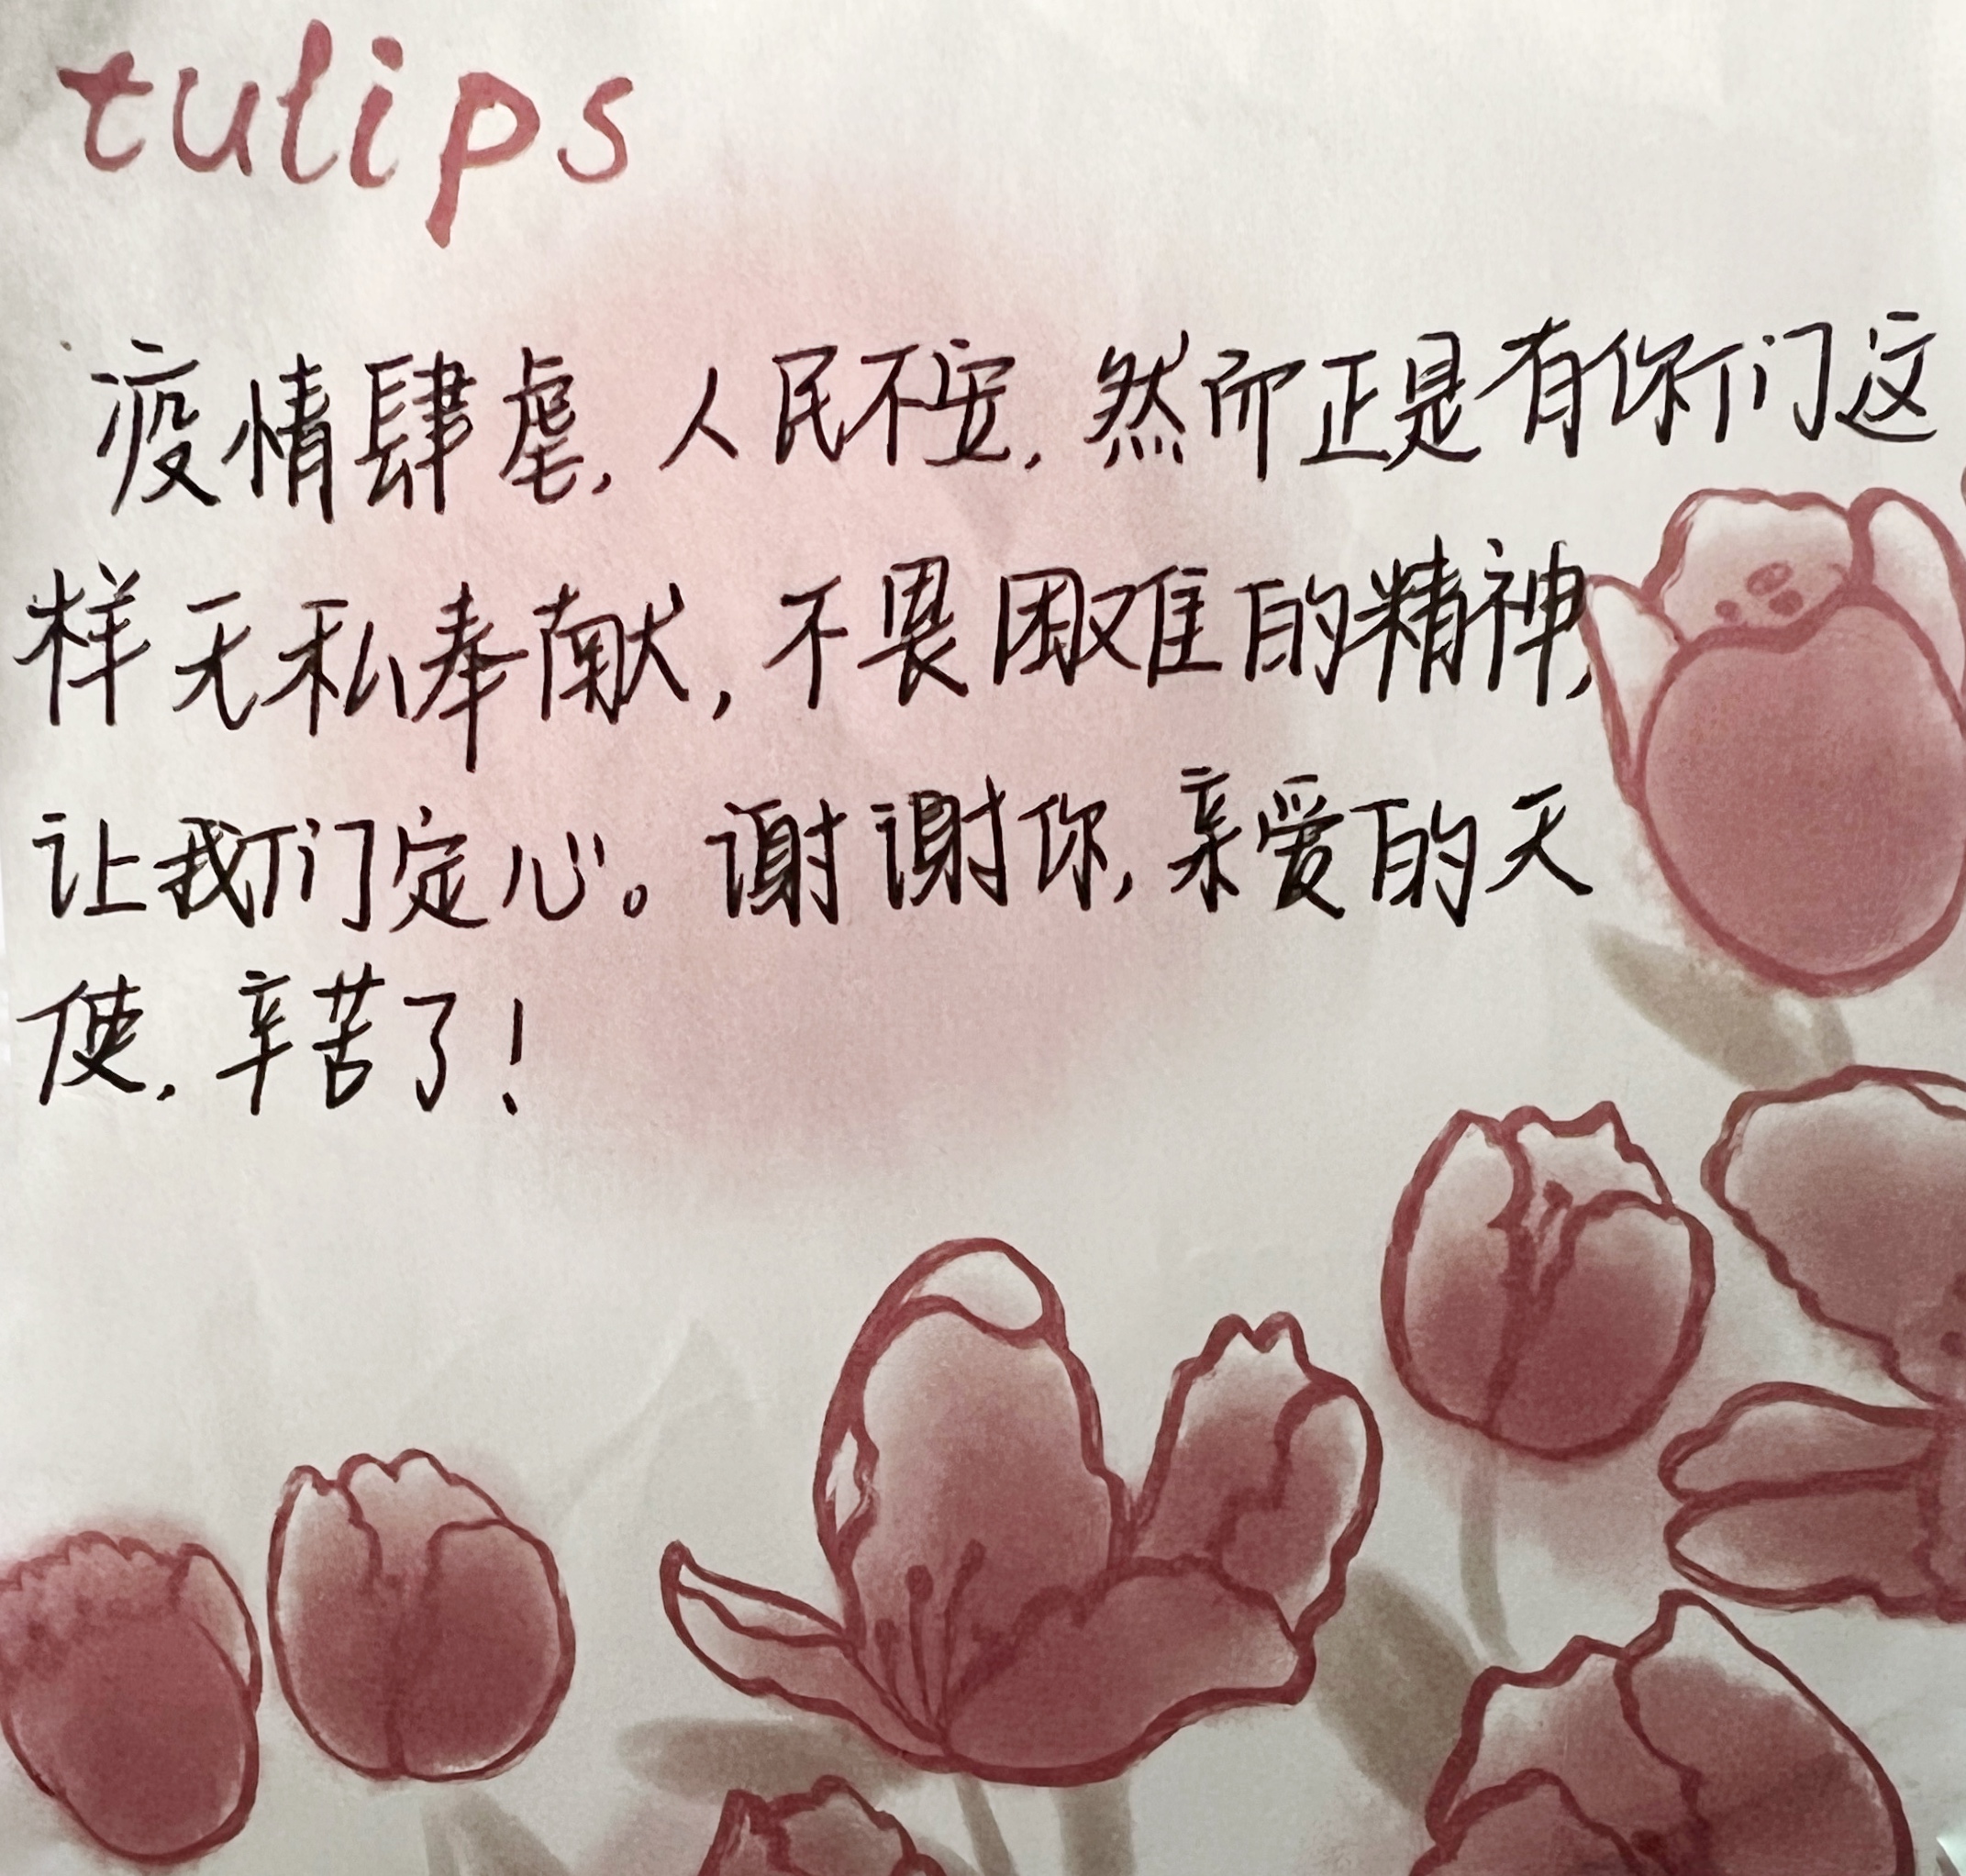 tulips
疫情肆虐,人民不安,然而正是有你们这
样无私奉献,不畏困难的精神,
让我们定心。谢谢你,亲爱的天
使,辛苦了!